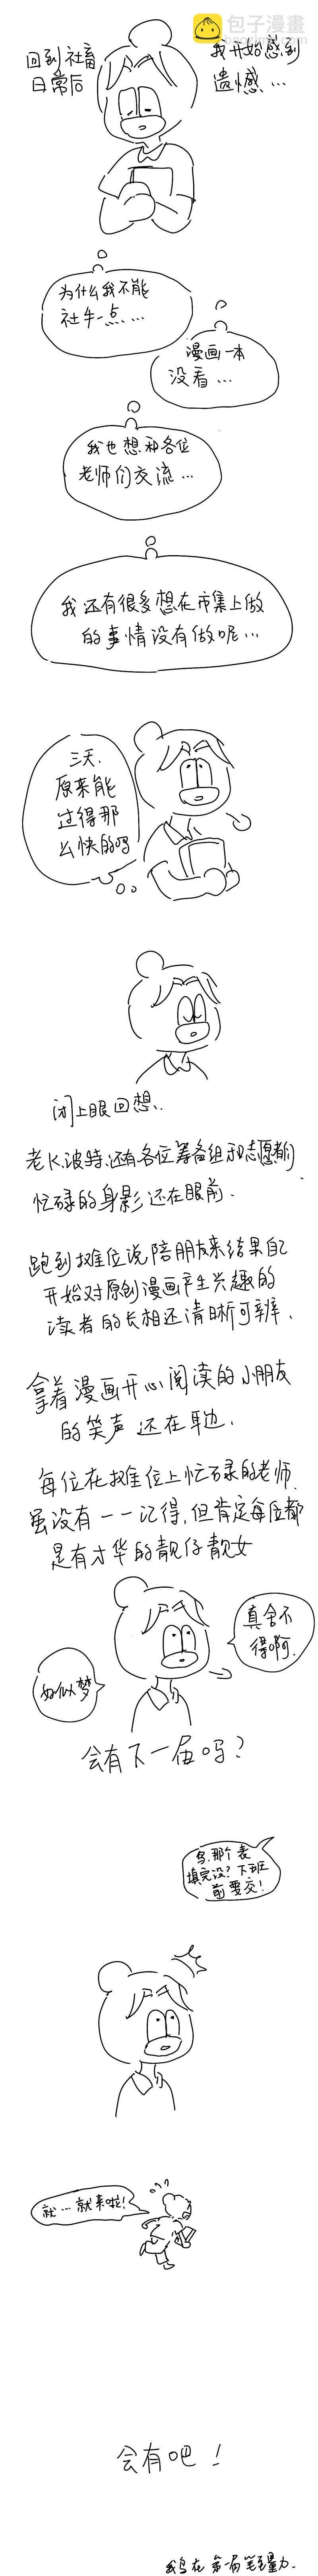 包子漫畫
回到社畜
日常后
我开始感到
遗憾…
为什么我不能
社牛一点……
漫画一本
没看…
我也想和各位
老师们交流…
我还有很多想在市集上做
的事情没有做呢…
三天.
原来能
过得那
么快的吗
闭上眼回想..
老K,波特,还有各位筹备组和志愿者们
忙碌的身影还在眼前.
跑到摊位说陪朋友来结果自己
开始对原创漫画产生兴趣的
读者的长相还清晰可辨.
拿着漫画开心阅读的小朋友
的笑声还在耳边.
每位在摊位上忙碌的老师.
虽没有一一记得,但肯定每位都
是有才华的靓仔靓女
真舍不
得啊.
好似梦
会有下一届吗?
乌.那个表
填完没?下班
前要交!
就…就来啦!
会有吧!
我乌在 第一届